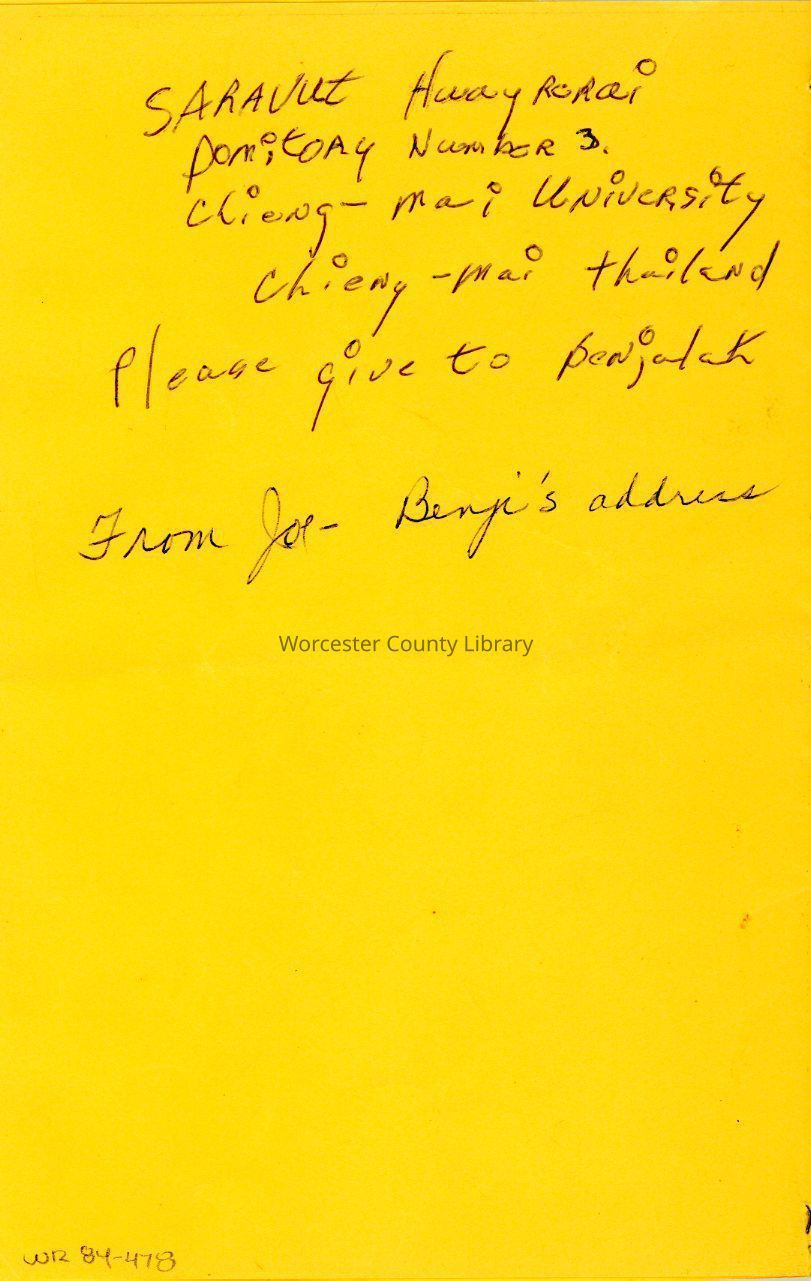 SARAVUt HwayRoRai
DomitoRy NumbeR 3.
Chieng-mai UNiveRsity
Chieng-mai thailand
Please give to Benjalak
From Joe- Benji's address
Worcester County Library
WR 84-478